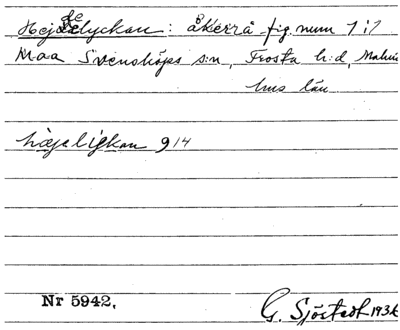 Hejdelyckan: åkerrå fig. num 1:1
Maa Svensköps s:n, Frosta h:d, Malmö
hus län
hæjeliykan 9/4
Nr 5942.
G. Sjöstedt 1936